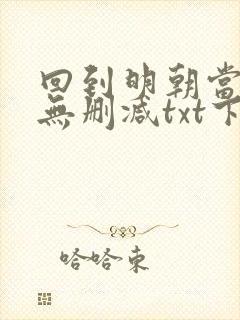 回到明朝當
無刪減txt下
哈哈東